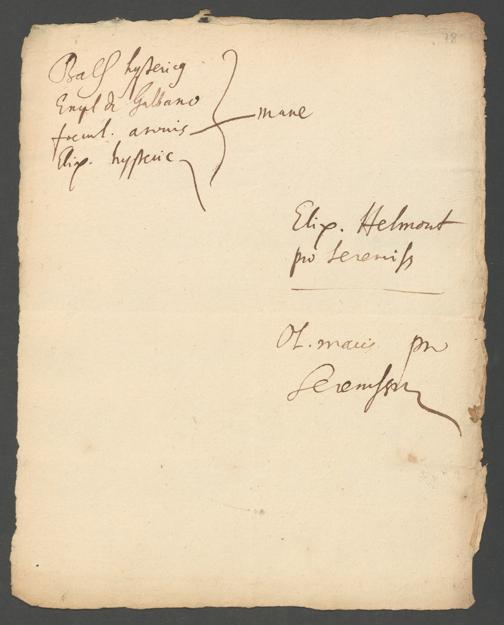 18
Balf hysteriq
Empl de Galbano
foecul. aronis
Elix. hysteric
mane
Elix. Helmont
pro Sereniss
Ol. macis pro